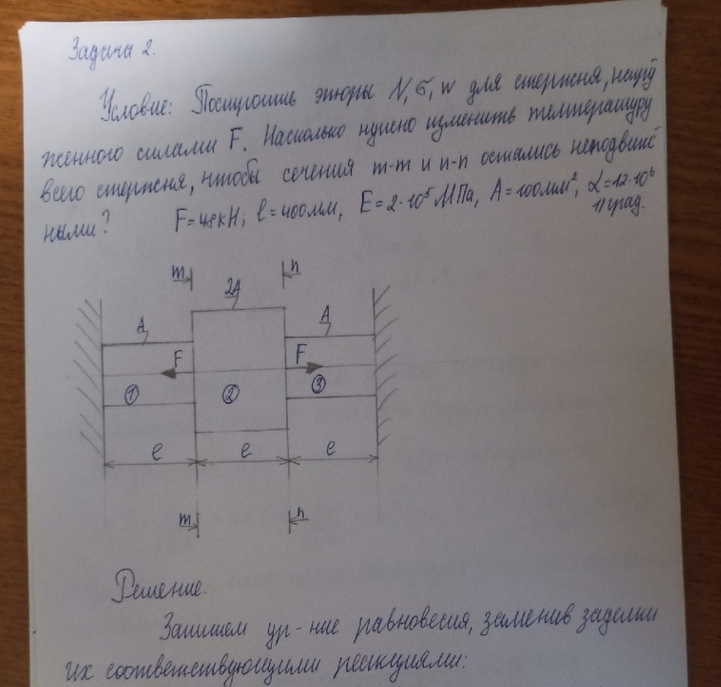 Задача 2.
Условие: Построить эпюры N, σ, w для стержня, нагру
женного силами F. Насколько нужно изменить температуру
всего стержня, чтобы сечения m-m и n-n остались неподвиж
ными? F=48кН; l=400мм, E=2·10⁵МПа, A=100мм², α=12·10⁶
1/град.
m n
2A
A A
F F
① ② ③
l l l
m n
Решение.
Запишем ур-ние равновесия, заменив заделки
их соответствующими реакциями: